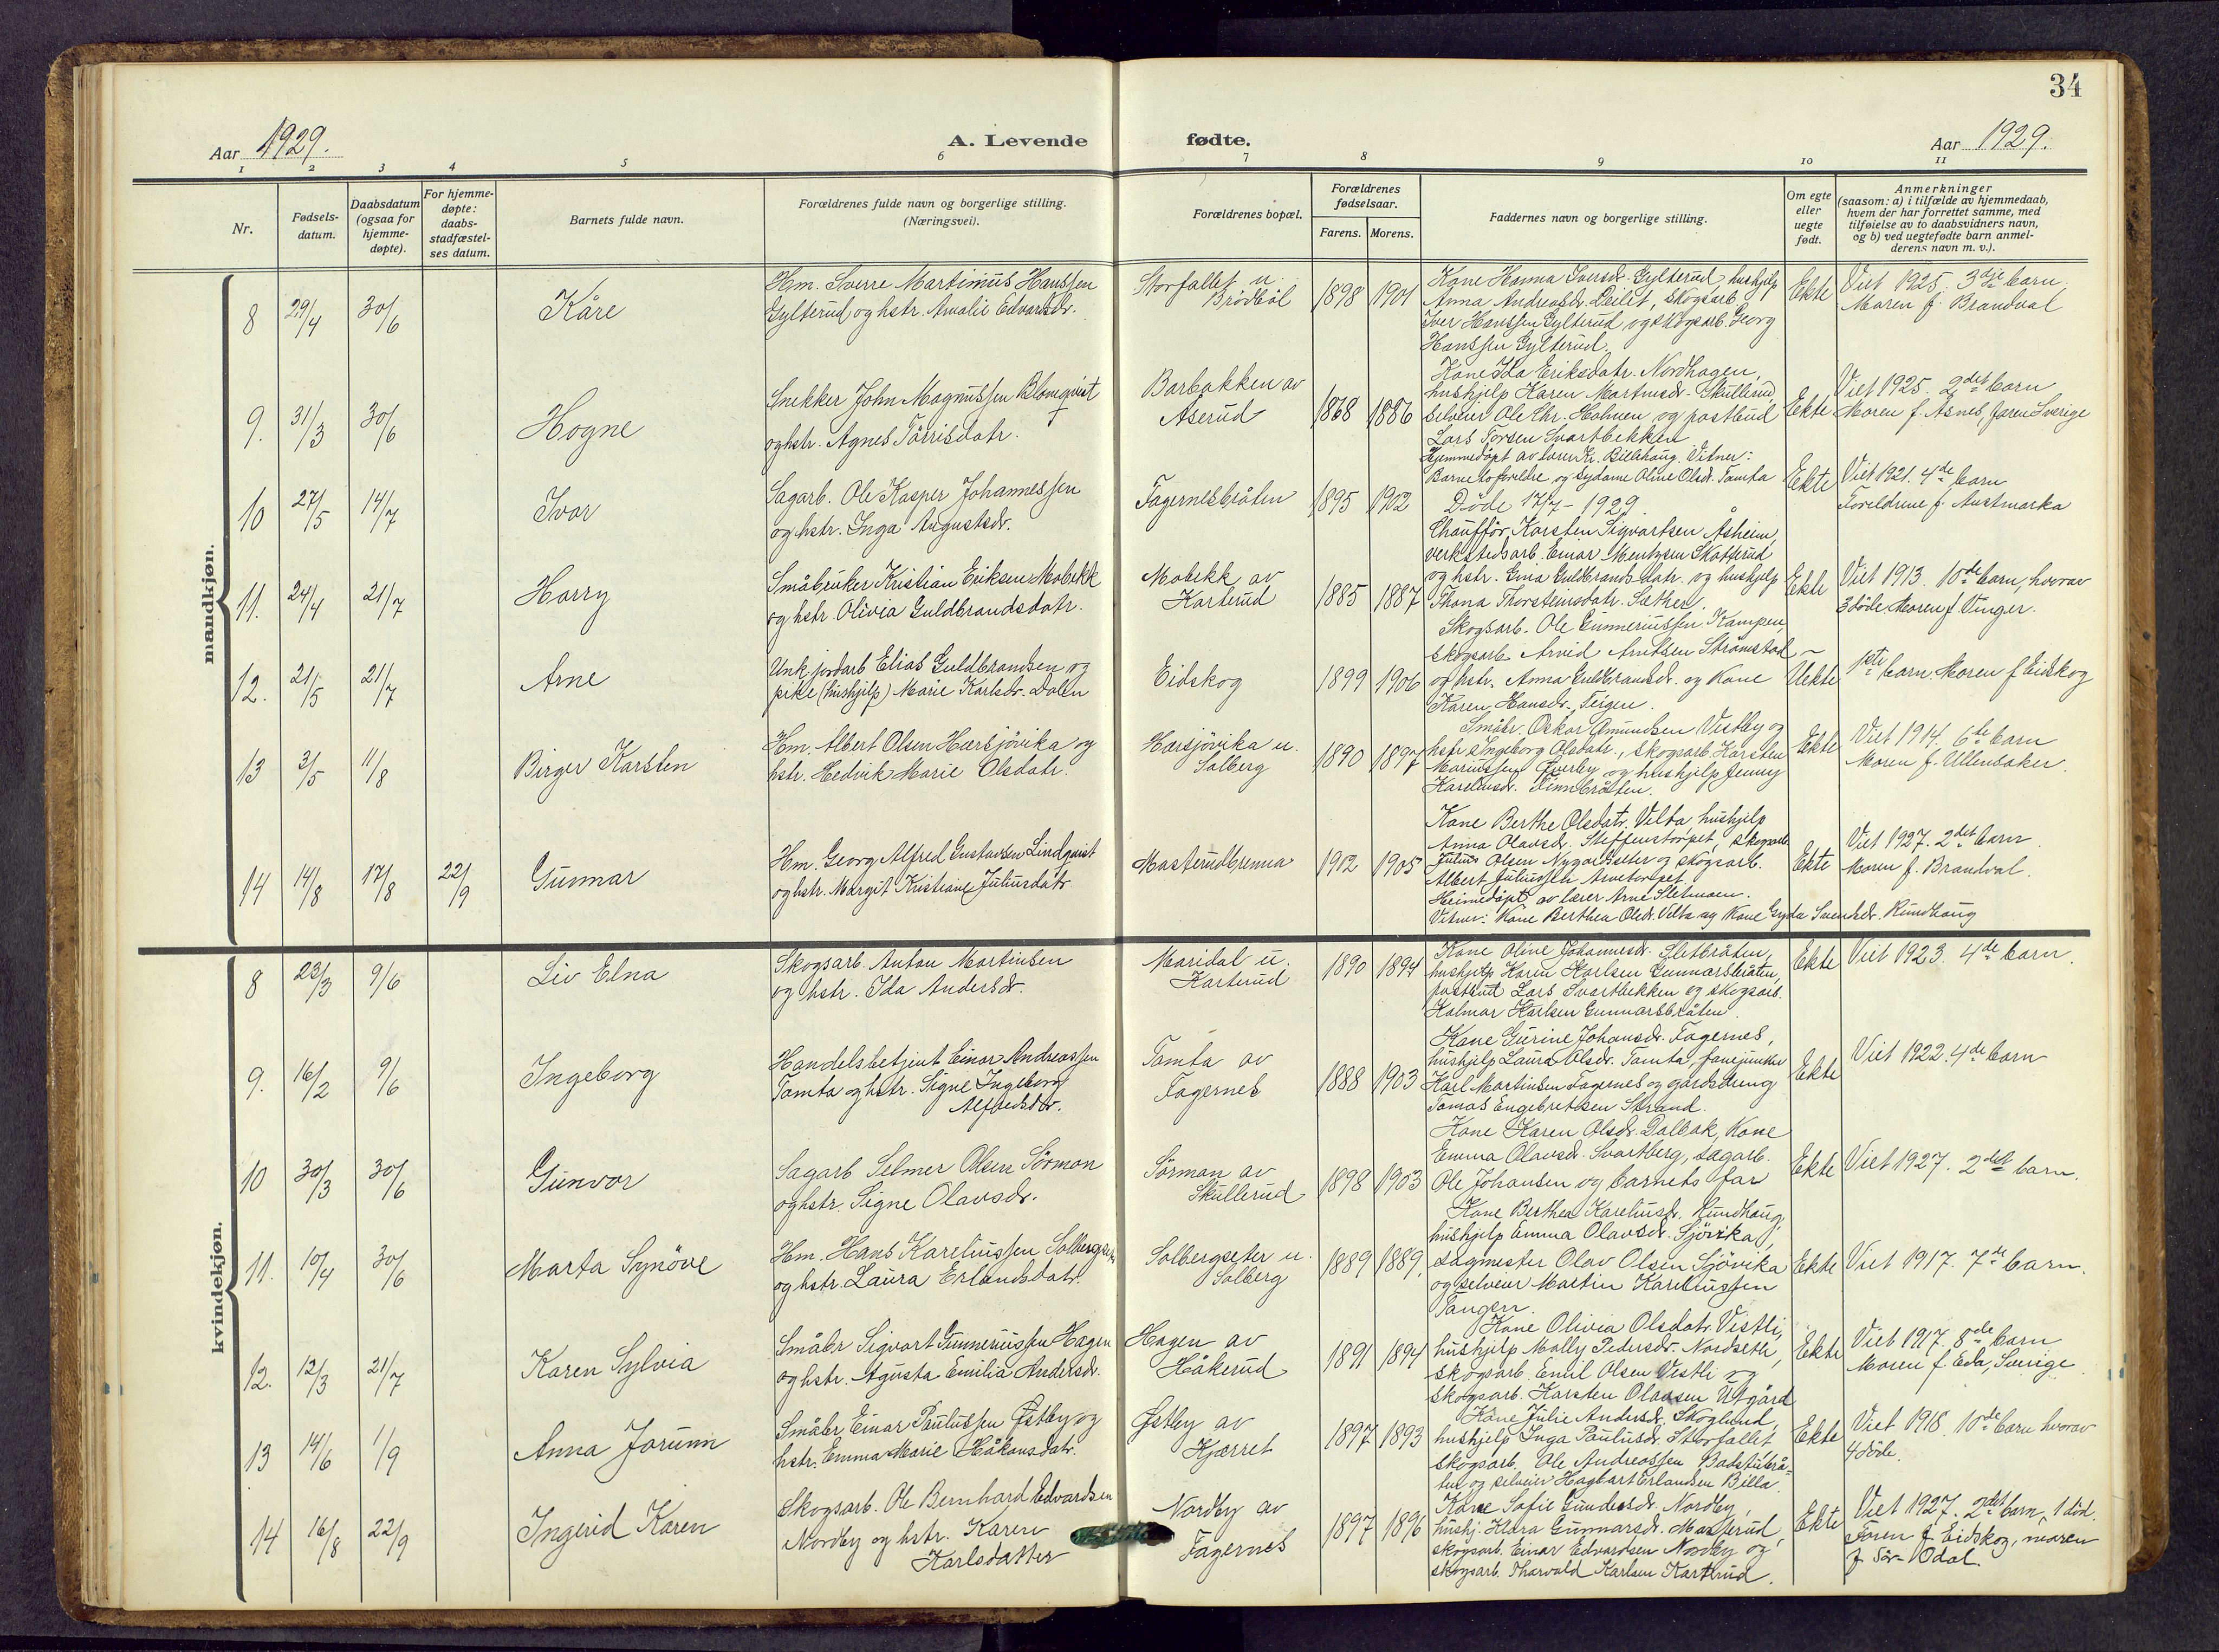 34
Aar 1929.
A. Levende fødte.
Aar 1929.
1 2 3 4 5 6 7 8 9 10 11
Nr.
Fødsels-
datum.
Daabsdatum
(ogsaa for
hjemme-
døpte).
For hjemme-
døpte:
daabs-
stadfæstel-
ses datum.
Barnets fulde navn.
Forældrenes fulde navn og borgerlige stilling.
(Næringsvei).
Forældrenes bopæl.
Forældrenes
fødselsaar.
Farens. Morens.
Faddernes navn og borgerlige stilling.
Om egte
eller
uegte
født.
Anmerkninger
(saasom: a) i tilfælde av hjemmedaab,
hvem der har forrettet samme, med
tilføielse av to daabsvidners navn,
og b) ved uegtefødte barn anmel-
derens navn m. v.).
mandkjøn.
8 29/4 30/6 Kåre
Hm. Sverre Martinius Hanssen
Gylterud og hstr. Amalie Edvardsdr.
Storfallet u
Brödböl
1898 1901
Kone Hanna Iversdr. Gylterud, hushjelp
Anna Andreasdr. Leilit, skogsarb.
Iver Hanssen Gylterud og skogsarb. Georg
Hanssen Gylterud.
Ekte
Viet 1925. 3dje barn.
Moren f. Brandval
9. 31/3 30/6 Hogne
Snekker John Magnussen Blomqvist
og hstr. Agnes Törrisdatr.
Barbakken av
Åserud
1868 1886
Kone Ida Eriksdatr. Nordhagen,
hushjelp Karen Martinsdr. Skullerud,
selveier Ole Chr. Holmen og postbud
Lars Torsen Svartbekken
Ekte
Viet 1925. 2det barn
Moren f. Åsnes, faren Sverige
10 27/5 14/7 Ivar
Sagarb. Ole Kasper Johannessen
og hstr. Inga Augustsdr.
Fagernesbråten
1895 1902
Hjemmedöpt av lærer Kr. Billehaug. Vitner:
Barnets foreldre og sydame Oline Olsdr. Tamta
Döde 17/7 - 1929.
Ekte
Viet 1921. 4de barn
Foreldrene f. Austmarka
11. 24/4 21/7 Harry
Småbruker Kristian Eriksen Mobekk
og hstr. Olivia Guldbrandsdatr.
Mobekk av
Karterud
1885 1887
Chaufför Karsten Sigvartsen Åsheim,
verkstedsarb. Einar Mentzsen Skatterud
og hstr. Gina Guldbrandsdatr. og hushjelp
Thona Thorsteinsdatr. Sæther.
Ekte
Viet 1913. 10de barn, hvorav
3 döde. Moren f. Vinger.
12. 21/5 21/7 Arne
Unk. jordarb Elias Guldbrandsen og
pike (hushjelp) Marie Karlsdr. Dalen
Eidskog
1899 1906
Skogsarb. Ole Gunneriussen Kampen,
skogsarb. Arvid Arntsen Strömstad
og hstr. Anna Guldbrandsdr. og Kone
Karen Hansdr. Teigen.
Uekte
1ste barn. Moren f Eidskog
13 3/5 11/8 Birger Karsten
Hm. Albert Olsen Hærsjövika og
hstr. Hedvik Marie Olsdatr.
Hærsjövika u.
Solberg
1890 1897
Småbr. Oskar Amundsen Vestby og
hstr. Ingeborg Olsdatr., skogsarb. Karsten
Mariussen Tverby og hushjelp Jenny
Kareliusdr. Finnbråten.
Ekte
Viet 1914. 6te barn
Moren f. Ullensaker.
14 14/8 17/8 22/9 Gunnar
Hm. Georg Alfred Gustavsen Lindqvist
og hstr. Margit Kristiane Juliusdatr
Masterudbrenna
1902 1905
Kone Berthe Olsdatr. Velta hushjelp
Anna Olavsdr. Steffenstorpet, skogsarb
Julius Olsen Nygardseter og skogsarb.
Albert Juliussen Arnetorpet.
Heimedöpt av lærer Arne Sletmoen.
Vitner: Kone Berthea Olsdr. Velta og Kone Gyda Svendsdr. Rundhaug
Ekte
Viet 1927. 2det barn.
Moren f. Brandval.
kvindekjøn.
8 23/3 9/6 Liv Elna
Skogsarb. Anton Martinsen
og hstr. Ida Andersdr.
Maridal u.
Karterud
1890 1894
Kone Oline Johannesdr. Sletbråten,
hushjelp Karin Karlsen Gunnarsbråten,
postbud Lars Svartbekken og skogsarb.
Halmar Karlsen Gunnarsbråten
Ekte
Viet 1923. 4de barn.
9. 16/2 9/6 Ingeborg
Handelsbetjent Einar Andreassen
Tamta og hstr. Signe Ingeborg
Alfredsdtr.
Tamta av
Fagernes
1888 1903
Kone Gurine Johansdr. Fagernes,
hushjelp Laura Olsdr. Tamta, fanejunker
Karl Martinsen Fagernes og gårdsdreng
Tomas Engebretsen Strand.
Ekte
Viet 1922. 4de barn
10 30/3 30/6 Gunvor
Sagarb Selmer Olsen Sörmon
og hstr. Signe Olavsdr.
Sörman av
Skullerud
1898 1903
Kone Karen Olsdr. Dalbak, Kone
Emma Olavsdr. Svartberg, sagarb.
Ole Johansen og barnets far
Ekte
Viet 1927. 2det barn.
11. 10/4 30/6 Marta Synöve
Hm. Hans Kareliussen Solbergseter
og hstr. Laura Erlandsdatr.
Solbergseter u.
Solberg
1889 1889
Kone Berthea Kareliusdr. Rundhaug,
hushjelp Emma Olavsdr. Sjövika,
sagmester Olav Olsen Sjövika
og selveier Martin Kareliussen
Tangen.
Ekte
Viet 1917. 7de barn.
12. 12/3 21/7 Karen Sylvia
Småbr Sigvart Gunneriussen Hagen
og hstr. Agusta Emilia Andersdr.
Hagen av
Håkerud
1891 1894
Kone Olivia Olsdatr. Vistli,
hushjelp Molly Pedersdr. Nordseth,
skogsarb. Emil Olsen Vestli og
skogsarb. Karsten Olavsen Utgård
Ekte
Viet 1917. 8de barn
Moren f Eda, Sverige
13 14/6 1/9 Anna Jorunn
Småbr. Einar Paulussen Østby og
hstr. Emma Marie Håkonsdatr.
Østby av
Kjærret
1897 1893
Kone Julie Andersdr. Skoglund,
hushjelp Inga Paulusdr. Storfallet
skogsarb. Ole Andreassen Badstubrå-
ten og selveier Hagbart Erlandsen Billa.
Ekte
Viet 1918. 10de barn hvorav
4 döde.
14 16/8 22/9 Ingerid Karen
Skogsarb. Ole Bernhard Edvardsen
Nordby og hstr. Karen
Karlsdatter
Nordby av
Fagernes
1897 1896
Kone Sofie Gundersdr. Nordby,
hushj. Klara Gunnarsdr. Masterud,
skogsarb. Einar Edvardsen Nordby og
skogsarb. Tharvald Karlsen Karterud.
Ekte
Viet 1927. 2det barn, 1 död.
Faren f. Eidskog, moren
f Sör-Odal.